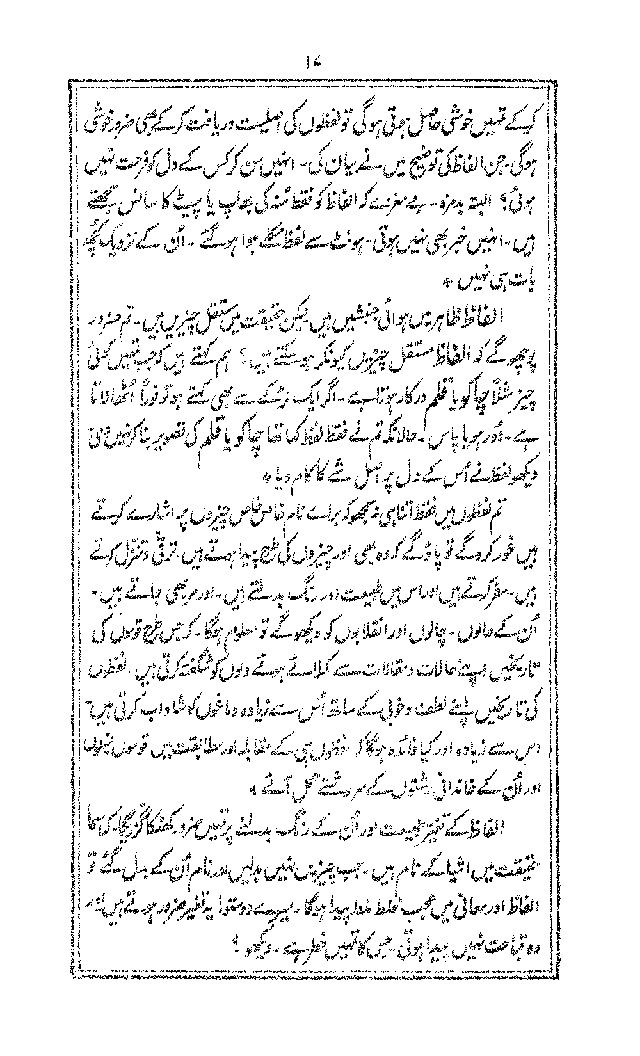 ۱۷
کرکے تمہیں خوشی حاصل ہوتی ہوگی تو لفظوں کی اصلیت دریافت کرکے بھی ضرور خوشی
ہوگی۔ جن الفاظ کی توضیح میں نے بیان کی۔ انہیں سن کر کس کے دل کو فرحت نہیں
ہوئی؟ البتہ بدمزہ۔ بے مغز ہے کہ الفاظ کو فقط منہ کی بھاپ یا پیٹ کا سانس سمجھتے
ہیں۔ انہیں خبر بھی نہیں ہوتی۔ ہونٹ سے لفظ نکلے ہوا ہو گئے۔ اُن کے نزدیک کچھ
بات ہی نہیں *
الفاظ ظاہر میں ہوائی جنبشیں ہیں لیکن حقیقت میں مستقل چیزیں ہیں۔ تم ضرور
پوچھوگے کہ الفاظ مستقل چیزیں کیونکر ہو سکتے ہیں؟ ہم کہتے ہیں کہ جب تمہیں کوئی
چیز مثلاً چاکو یا قلم درکار ہوتا ہے۔ اگر ایک لڑکے سے بھی کہتے ہو تو فوراً اُٹھا لاتا
ہے۔ دُور ہو یا پاس۔ حالانکہ تم نے فقط لفظ کہا تھا چاکو یا قلم کی تصویر بنا کر نہیں دی
دیکھو لفظ نے اُس کے دل پر اصل شے کا کام دیا *
تم لفظوں میں فقط اتنا ہی نہ سمجھو کہ برائے نام خاص خاص چیزوں پر اشارے کرتے
ہیں غور کروگے تو پاؤگے کہ وہ بھی اور چیزوں کی طرح پیدا ہوتے ہیں۔ ترقی و تنزل کرتے
ہیں۔ سفر کرتے ہیں اور اس میں طبیعت اور رنگ بدلتے ہیں۔ اور مر بھی جاتے ہیں۔
اُن کے حالوں۔ چالوں اور انقلابوں کو دیکھوگے تو معلوم ہوگا۔ کہ جس طرح قوموں کی
تاریخیں اپنے حالات و مقالات سے کملائے ہوئے دلوں کو شگفتہ کرتی ہیں۔ لفظوں
کی تاریخیں اپنے لطف و خوبی کے ساتھ اُس سے زیادہ دماغوں کو شاداب کرتی ہیں۔
اس سے زیادہ اور کیا فائدہ ہوگا کہ لفظوں ہی کے مقابلہ اور مطابقت میں قوموں قوموں
اور اُن کے خاندانی رشتوں کے سررشتے نکل آئے *
الفاظ کے تغیر طبیعت اور اُن کے رنگ بدلنے پر تمہیں ضرور کھٹکا گزریگا۔ کہ اسما
حقیقت میں اشیا کے نام ہیں۔ جب چیزیں نہیں بدلیں اور نام اُن کے بدل گئے تو
الفاظ اور معانی میں عجب خلط ملط پیدا ہوگا۔ میرے دوستو! یہ تغیر ضرور ہوتے ہیں اور
وہ قباحت نہیں پیدا ہوتی۔ جس کا تمہیں خطر ہے۔ دیکھو؟